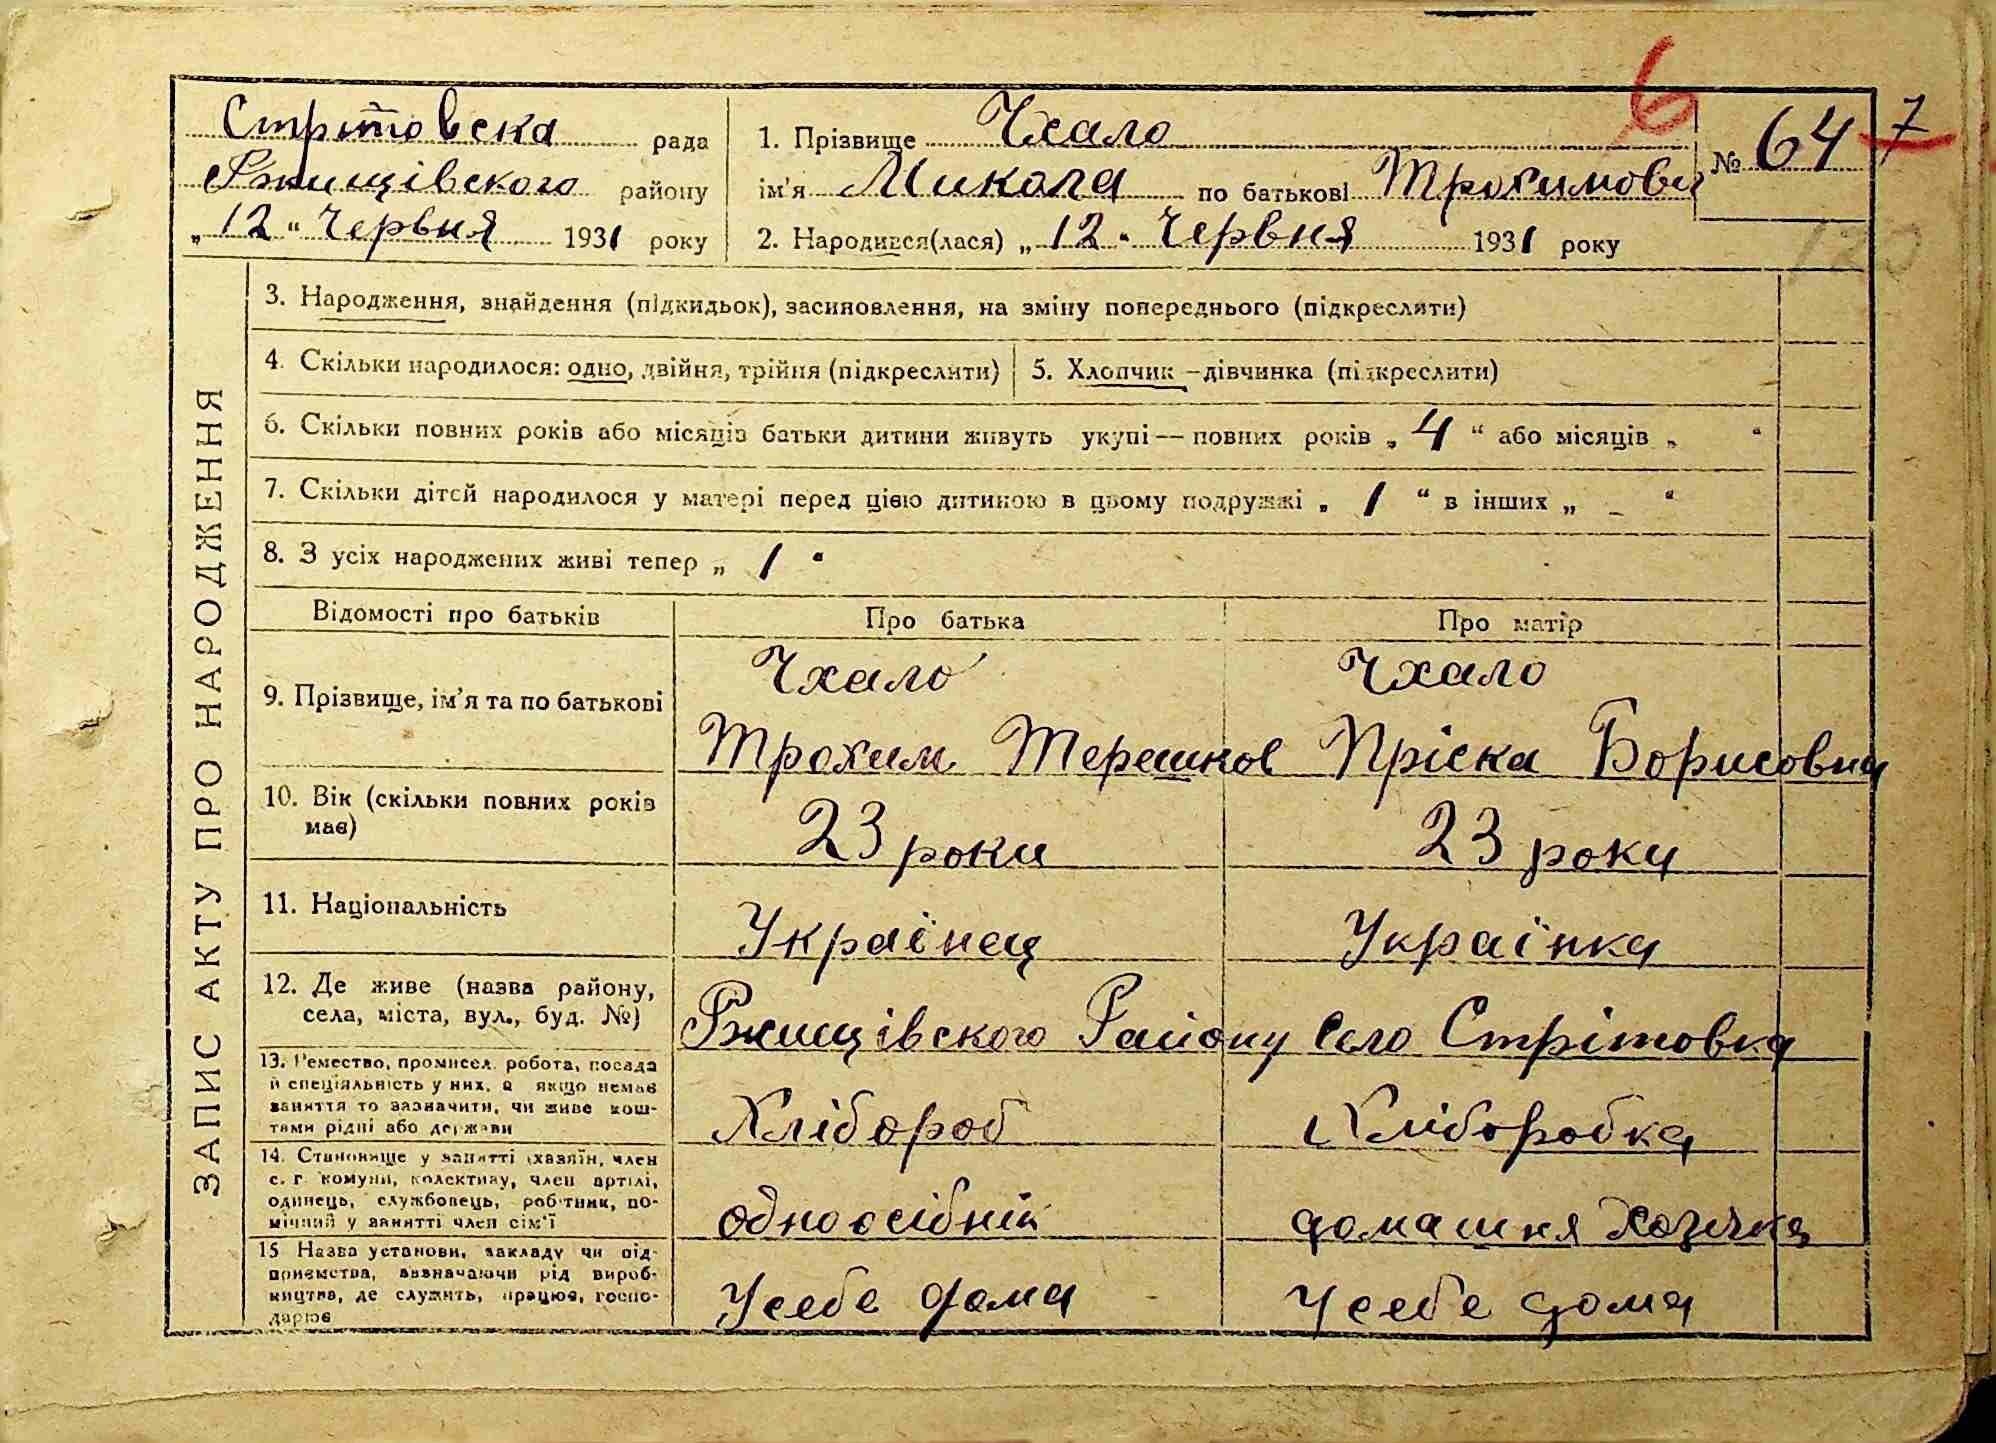 6
Стрітовска рада
Ржищівского району
„12“ Червня 1931 року
1. Прізвище Чхало
ім’я Микола по батькові Трохимови
2. Народився(лася) „12“ Червня 1931 року
№ 64
7
ЗАПИС АКТУ ПРО НАРОДЖЕННЯ
3. Народження, знайдення (підкидьок), засиновлення, на зміну попереднього (підкреслити)
4. Скільки народилося: одно, двійня, трійня (підкреслити)
5. Хлопчик – дівчинка (підкреслити)
6. Скільки повних років або місяців батьки дитини живуть укупі — повних років „4“ або місяців „ “
7. Скільки дітей народилося у матері перед цією дитиною в цьому подружжі „1“ в інших „–“
8. З усіх народжених живі тепер „1“
Відомості про батьків Про батька Про матір
9. Прізвище, ім’я та по батькові
Чхало Чхало
Трохим Терешков Пріска Борисовна
10. Вік (скільки повних років
має)
23 роки 23 роки
11. Національність
Українец Українка
12. Де живе (назва району,
села, міста, вул., буд. №)
Ржищівского Району Село Стрітовка
13. Ремество, промисел, робота, посада
й спеціяльність у них, а якщо немає
заняття то зазначити, чи живе кош-
тами рідні або держави
Хлібороб Хліборобка
14. Становище у занятті (хазяїн, член
с. г. комуни, колективу, член артілі,
одинець, службовець, робітник, по-
мічний у занятті член сім’ї
одноосібнік домашня Хозяйка
15 Назва установи, закладу чи під-
приємства, визначаючи рід вироб-
ництва, де служить, працює, госпо-
дарює
У себе дома У себе дома